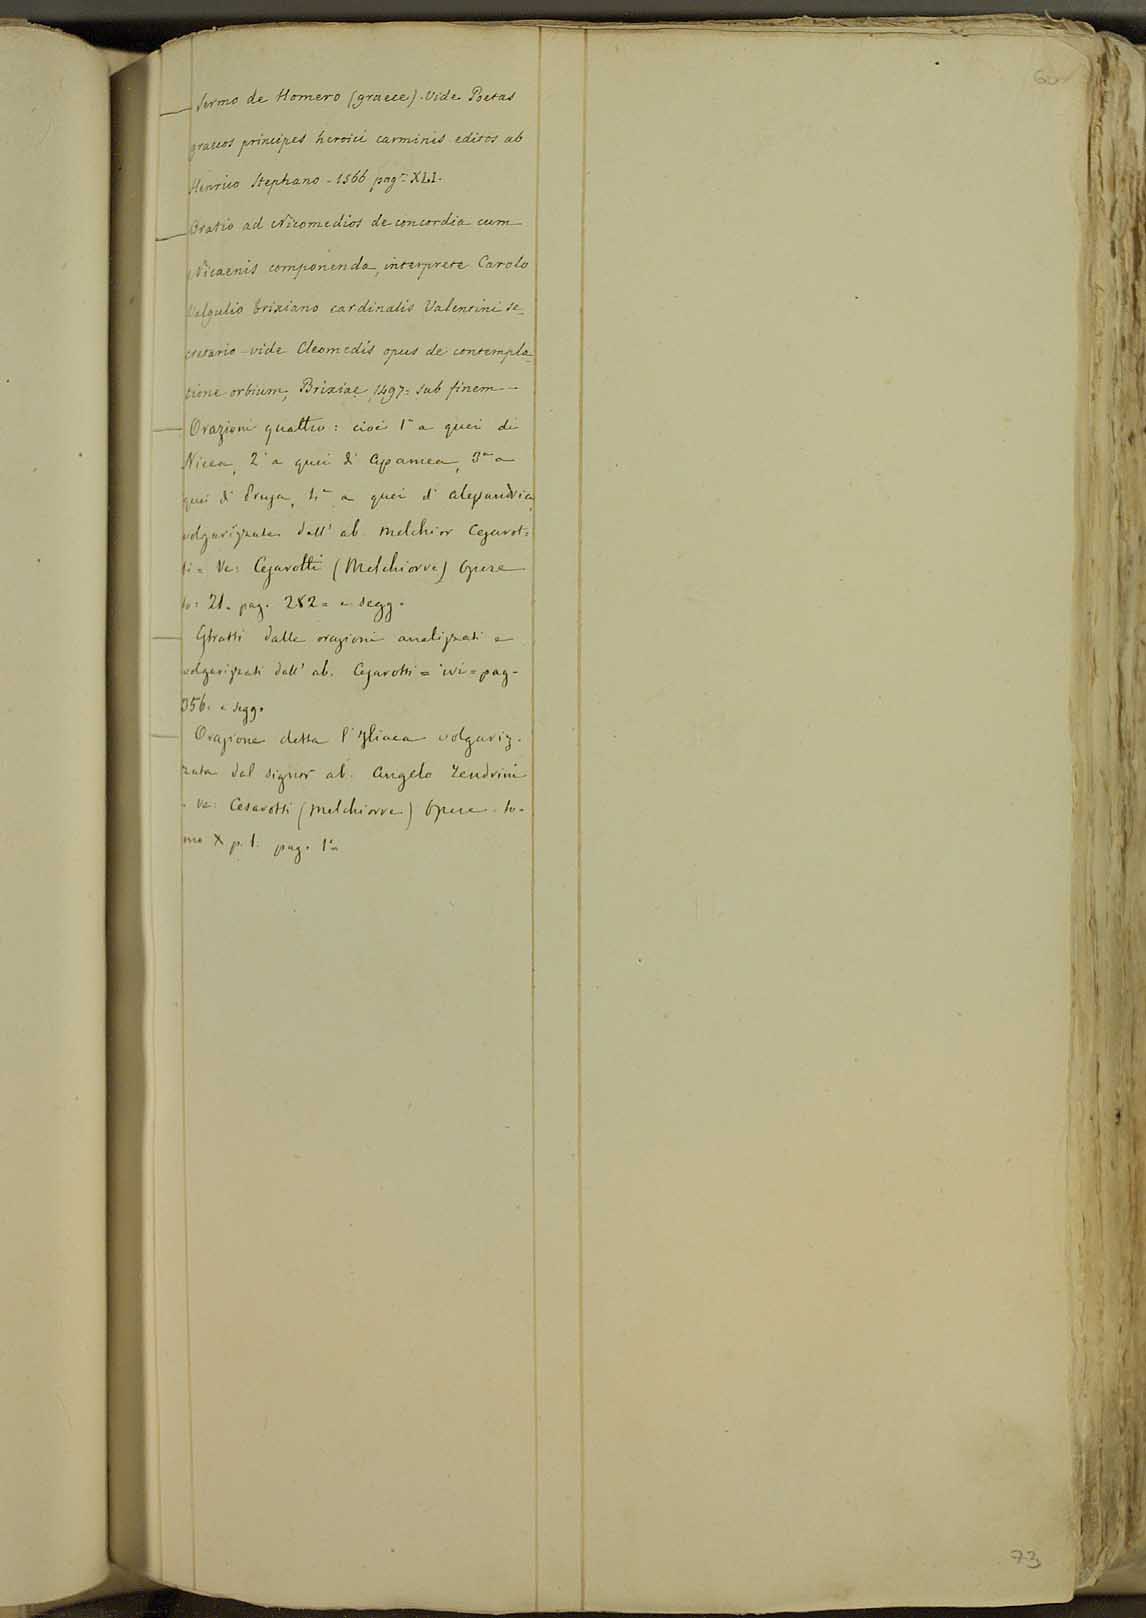 Sermo de Homero (graece). Vide Poetas
graecos principes heroici carminis editos ab
Henrico Stephano - 1566 pag.ª XLI.
Oratio ad Nicomedios de concordia cum
Nicaenis componenda, interprete Carolo
Valgulio brixiano cardinalis Valentini se_
cretario - vide Cleomedis opus de contempla_
tione orbium, Brixiae, 1497 = sub finem -
Orazioni quattro: cioè 1ª a quei di
Nicea, 2ª a quei di Apamea, 3ª a
quei di Prusa, 4ª a quei d'Alessandria,
volgarizzate dall' ab. Melchior Cesarot=
ti = Ve: Cesarotti (Melchiorre) Opere
to: 21. pag. 282 = e segg.
Estratti dalle orazioni analizzati e
volgarizzati dall' ab. Cesarotti = ivi = pag.
356. e segg.
Orazione detta l'Iliaca volgariz-
zata dal signor ab. Angelo Zendrini
- Ve: Cesarotti (Melchiorre) Opere - to-
mo X p. 1. pag. 1ª
73